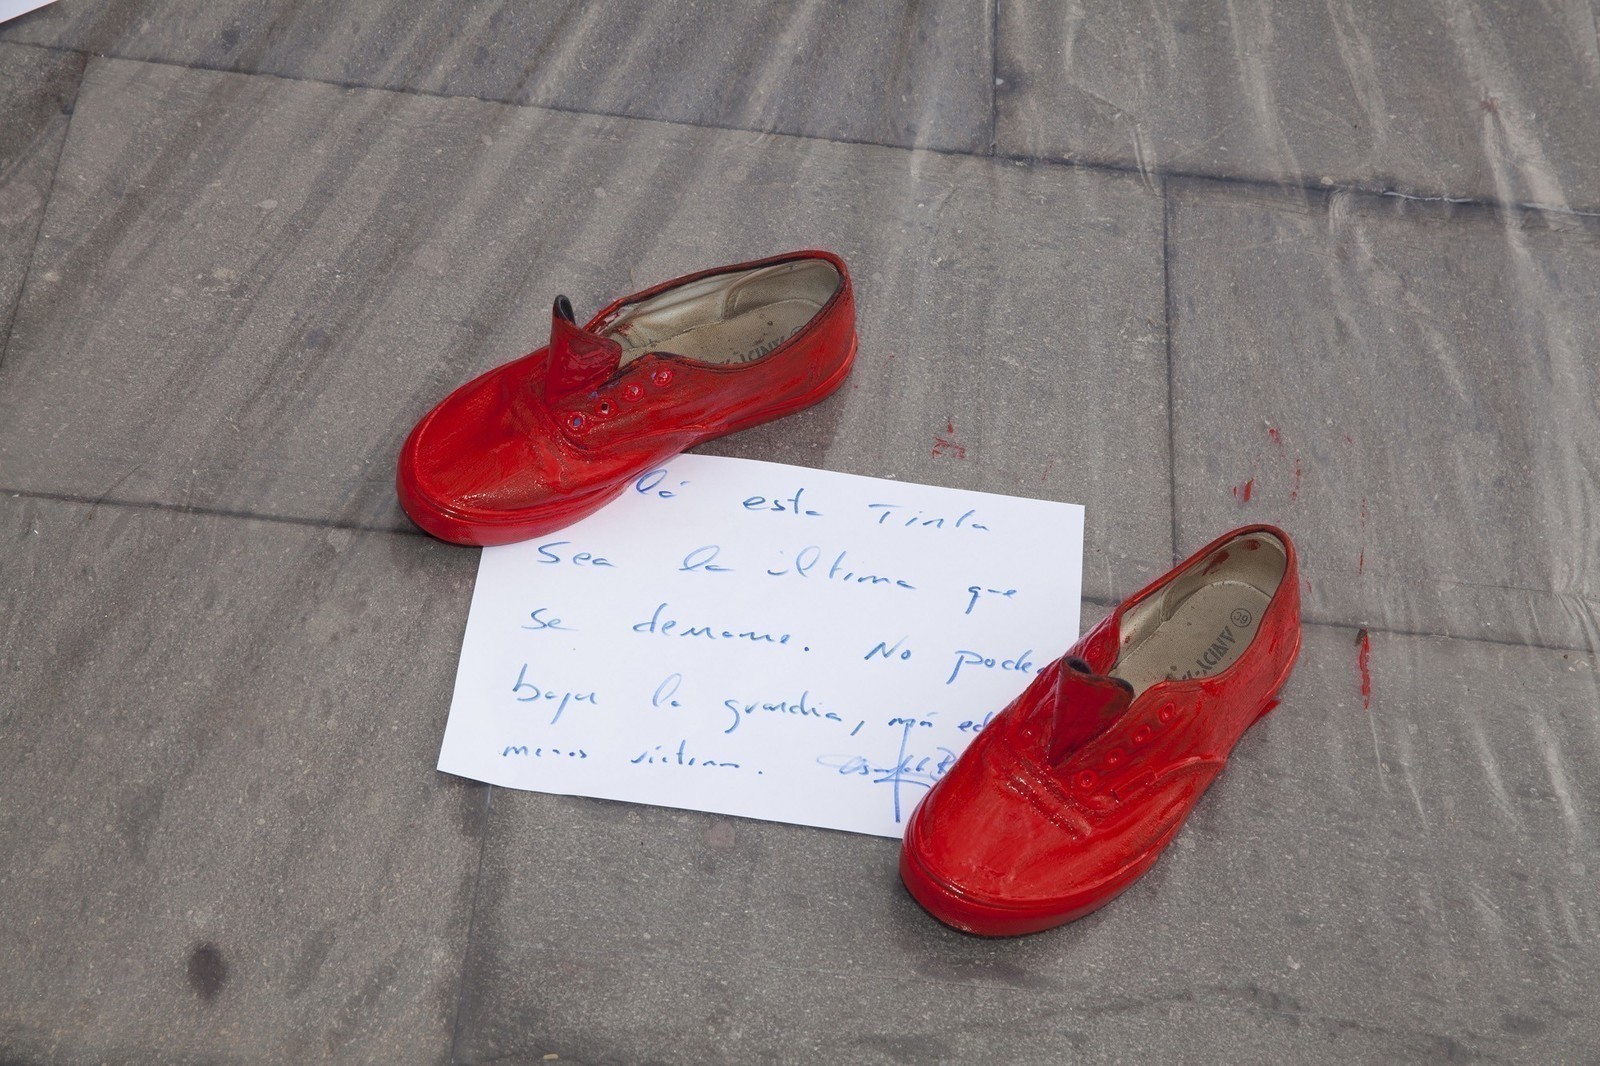 lá esta Tinta
Sea la última que
se derrame. No pode
bajar la guardia, más ed
menos víctimas.